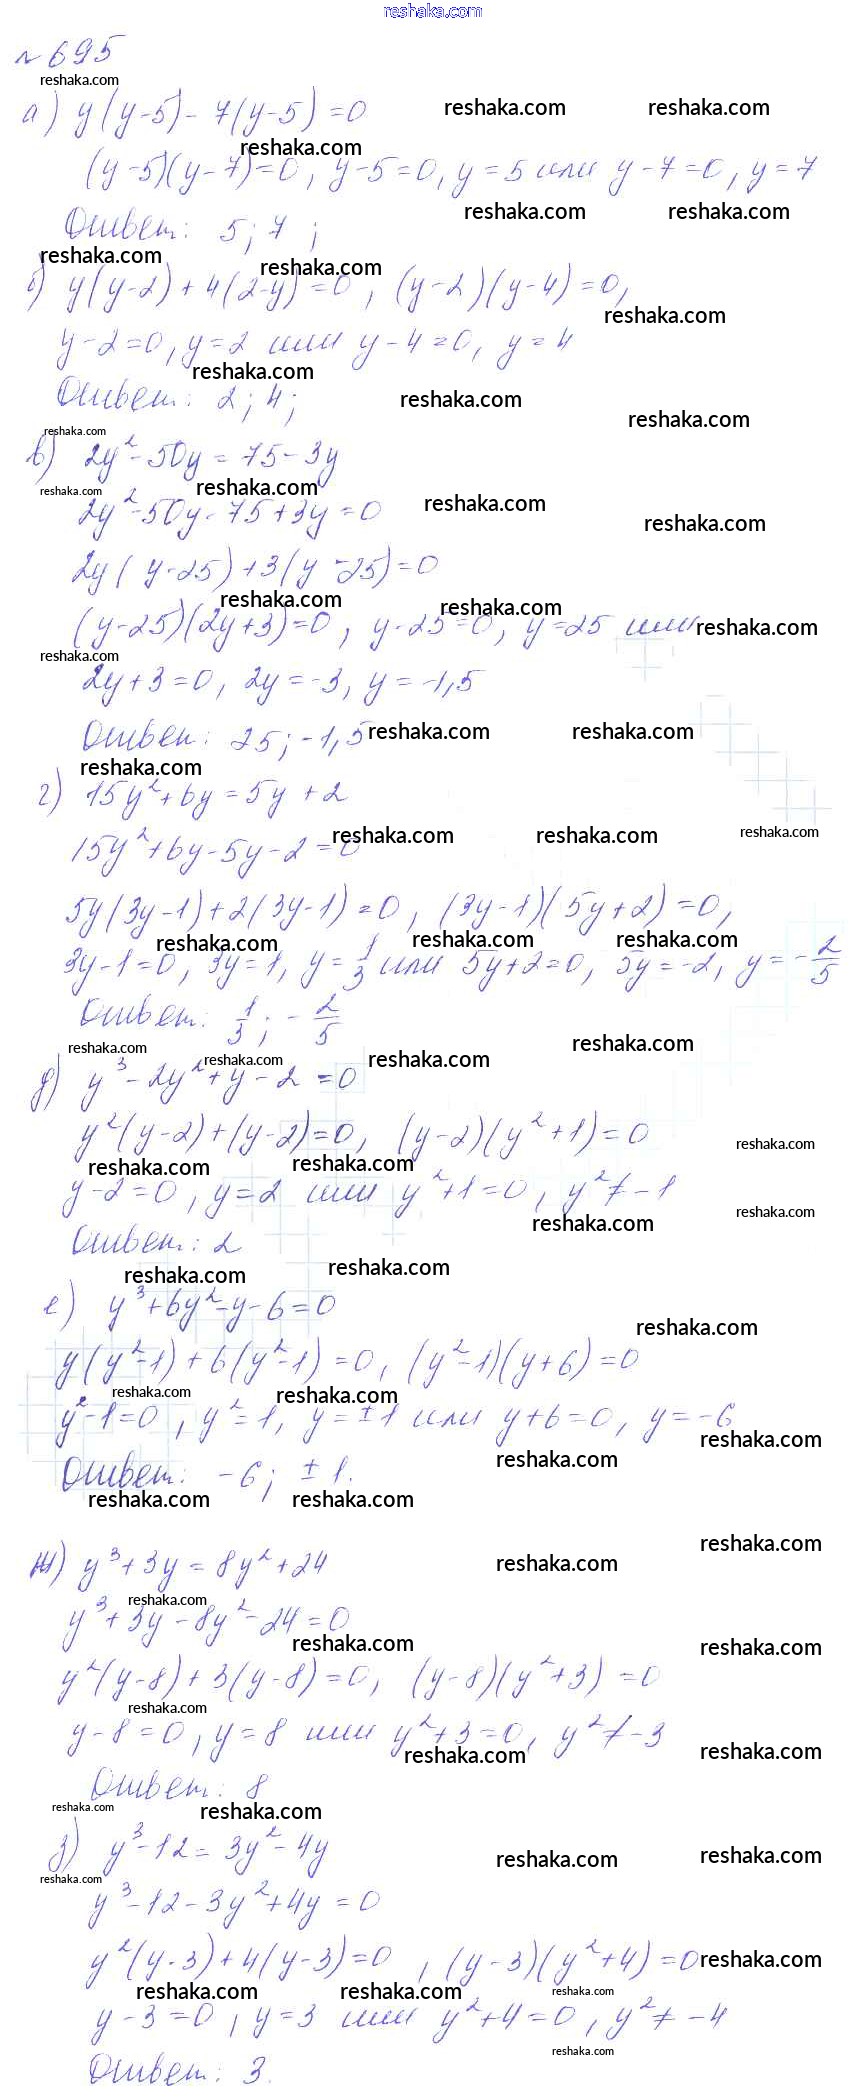 reshaka.com
№ 695
а) y(y-5)-7(y-5)=0
(y-5)(y-7)=0, y-5=0, y=5 или y-7=0, y=7
Ответ: 5; 7;
б) y(y-2)+4(2-y)=0, (y-2)(y-4)=0,
y-2=0, y=2 или y-4=0, y=4
Ответ: 2; 4;
в) 2y²-50y=75-3y
2y²-50y-75+3y=0
2y(y-25)+3(y-25)=0
(y-25)(2y+3)=0, y-25=0, y=25 или
2y+3=0, 2y=-3, y=-1,5
Ответ: 25; -1,5
г) 15y²+6y=5y+2
15y²+6y-5y-2=0
5y(3y-1)+2(3y-1)=0, (3y-1)(5y+2)=0,
3y-1=0, 3y=1, y=1/3 или 5y+2=0, 5y=-2, y=-2/5
Ответ: 1/3; -2/5
д) y³-2y²+y-2=0
y²(y-2)+(y-2)=0, (y-2)(y²+1)=0
y-2=0, y=2 или y²+1=0, y²≠-1
Ответ: 2
е) y³+6y²-y-6=0
y(y²-1)+6(y²-1)=0, (y²-1)(y+6)=0
y²-1=0, y²=1, y=±1 или y+6=0, y=-6
Ответ: -6; ±1.
ж) y³+3y=8y²+24
y³+3y-8y²-24=0
y²(y-8)+3(y-8)=0, (y-8)(y²+3)=0
y-8=0, y=8 или y²+3=0, y²≠-3
Ответ: 8
з) y³-12=3y²-4y
y³-12-3y²+4y=0
y²(y-3)+4(y-3)=0, (y-3)(y²+4)=0
y-3=0, y=3 или y²+4=0, y²≠-4
Ответ: 3.